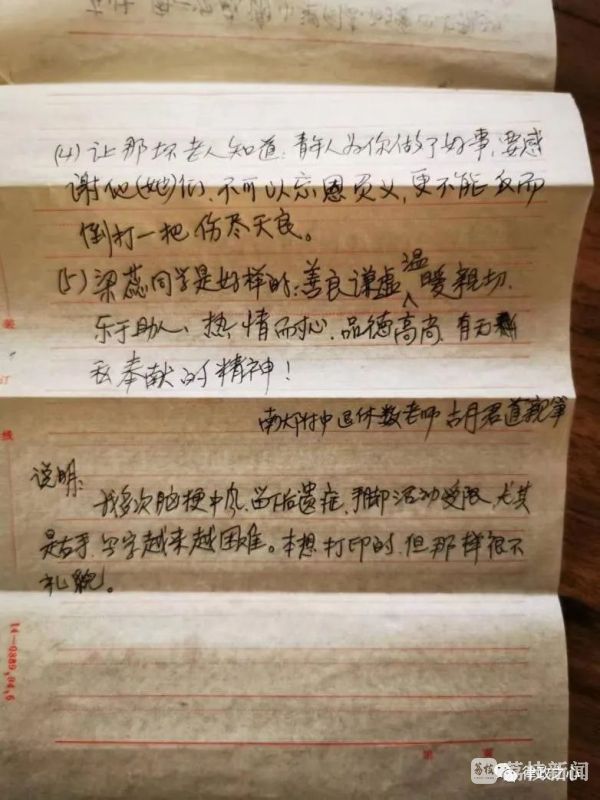 (4)让那坏老人知道:青年人为你做了好事,要感
谢他(她)们,不可以忘恩负义,更不能反而
倒打一把伤尽天良。
(5)梁蕊同学是好样的:善良谦虚温暖親切、
乐于助人、热情而心、品德高尚、有无
私奉献的精神!
南邮附中退休数老师 古月君道親筆
说明:
我多次脑梗中风,留下后遗症,手脚活动受限,尤其
是右手,写字越来越困难。本想打印的,但那样很不
礼貌。
装
订
线
14—0389.94.6
第 页
荔枝新闻
律政之心